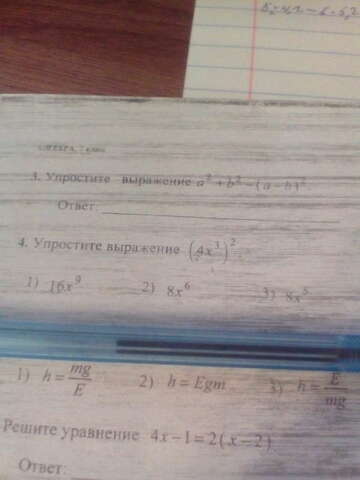 3. Упростите выражение a² + b² − (a − b)²
Ответ:
4. Упростите выражение (4x³)²
1) 16x⁹ 2) 8x⁶ 3) 8x⁵
1) h = mg/E 2) h = Egm 3) h = E/mg
Решите уравнение 4x−1=2(x−2)
Ответ: